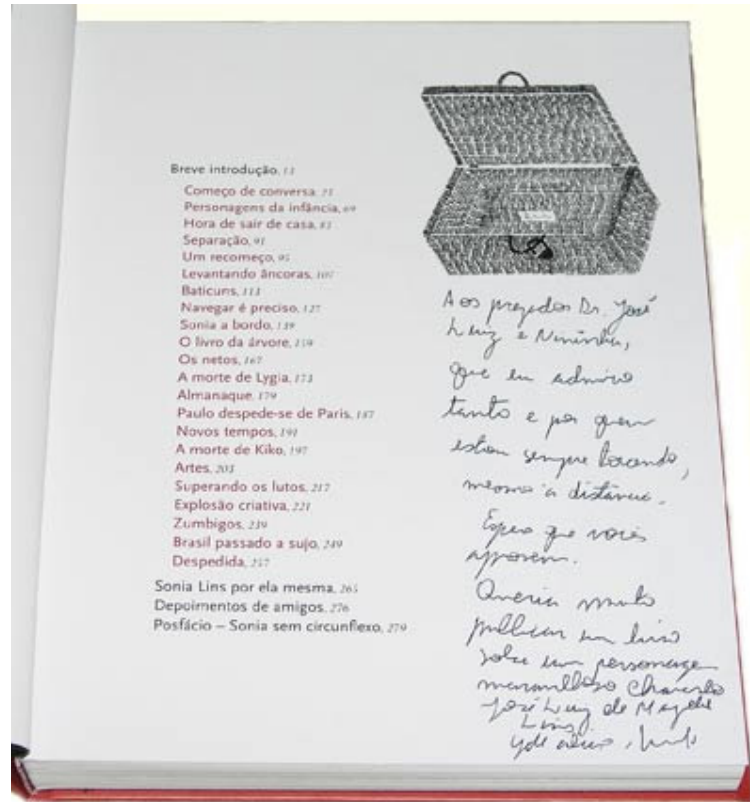 Breve introdução, 13
Começo de conversa, 23
Personagens da infância, 69
Hora de sair de casa, 83
Separação, 91
Um recomeço, 95
Levantando âncoras, 107
Baticuns, 113
Navegar é preciso, 127
Sonia a bordo, 139
O livro da árvore, 159
Os netos, 167
A morte de Lygia, 173
Almanaque, 179
Paulo despede-se de Paris, 187
Novos tempos, 191
A morte de Kiko, 197
Artes, 203
Superando os lutos, 217
Explosão criativa, 221
Zumbigos, 239
Brasil passado a sujo, 249
Despedida, 257
Sonia Lins por ela mesma, 265
Depoimentos de amigos, 276
Posfácio – Sonia sem circunflexo, 279
Aos prezados Dr. José
Luiz e Nininha,
que eu admiro
tanto e por quem
estou sempre torcendo,
mesmo à distância.
Espero que vocês
aprovem.
Queria muito
publicar um livro
sobre um personagem
maravilhoso chamado
José Luiz de Magalhães
Lins.